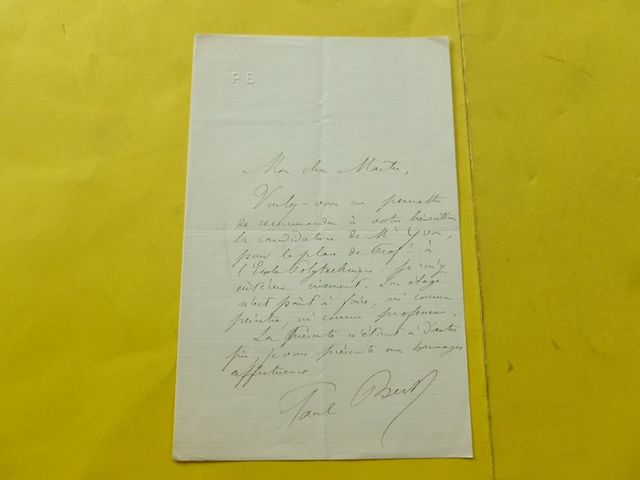 PB
Mon cher Maître,
Voulez-vous me permettre
de recommander à votre
la candidature de Mr Yvon,
pour la place de Profr à
l'Ecole Polytechnique. Je m'y
intéresse vivement. Son éloge
n'est point à faire, ni comme
peintre, ni comme professeur.
La présente n'étant à d'autre
fin, je vous présente mes hommages
affectueux
Paul Bert